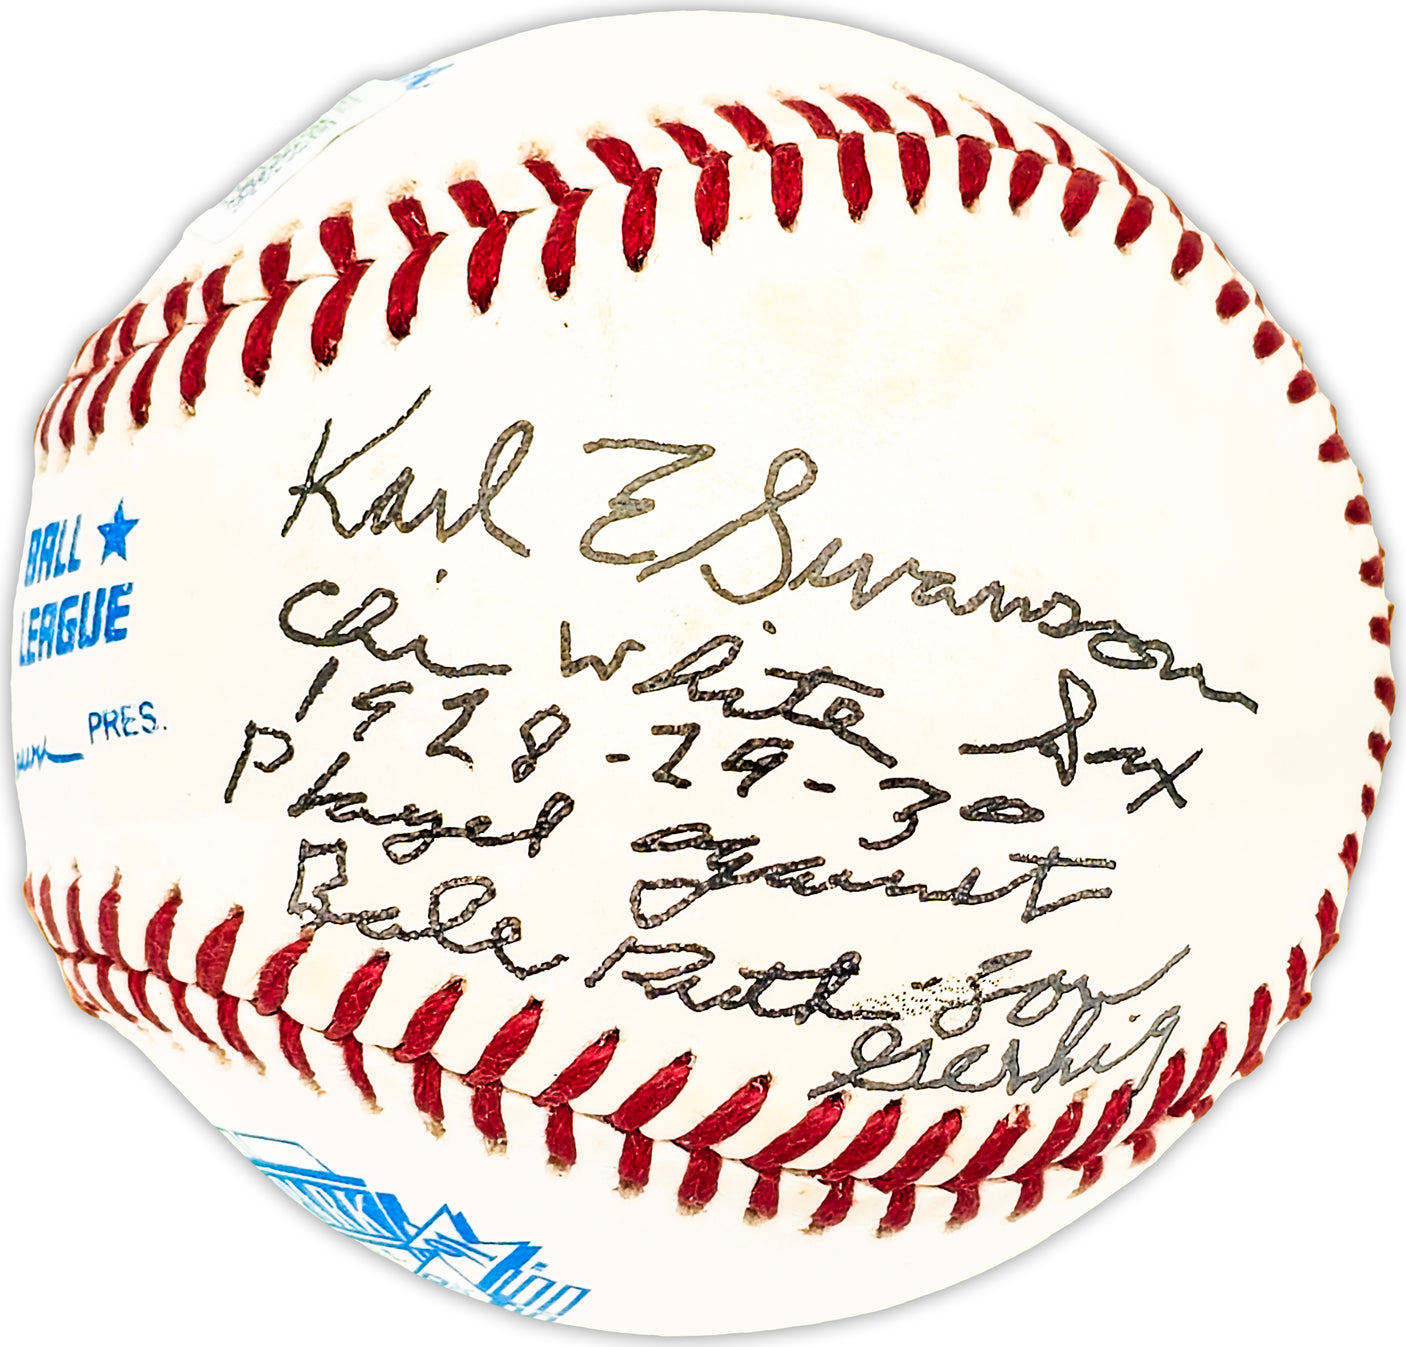 BALL ★
LEAGUE
PRES.
Karl E Swanson
Chi White Sox
1928-29-30
Played against
Babe Ruth - Lou
Gerhig